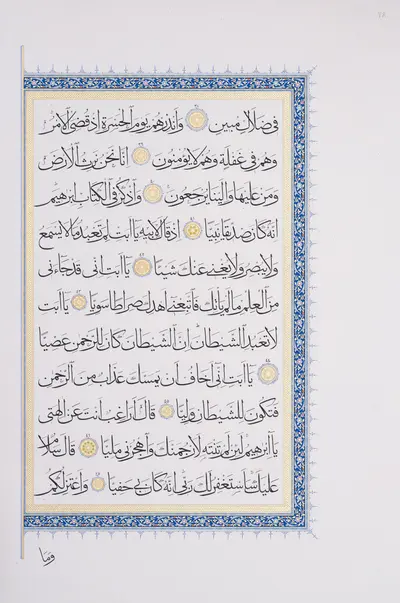 في ضلال مبين وأنذرهم يوم الحسرة إذ قضي الأمر
وهم في غفلة وهم لا يؤمنون إنا نحن نرث الأرض
ومن عليها وإلينا يرجعون واذكر في الكتاب إبرهيم
إنه كان صديقا نبيا إذ قال لأبيه يا أبت لم تعبد ما لا يسمع
ولا يبصر ولا يغني عنك شيئا يا أبت إني قد جاءني
من العلم ما لم يأتك فاتبعني أهدك صراطا سويا يا أبت
لا تعبد الشيطان إن الشيطان كان للرحمن عصيا
يا أبت إني أخاف أن يمسك عذاب من الرحمن
فتكون للشيطان وليا قال أراغب أنت عن آلهتي
يا إبرهيم لئن لم تنته لأرجمنك واهجرني مليا قال سلام
عليك سأستغفر لك ربي إنه كان بي حفيا وأعتزلكم
وما